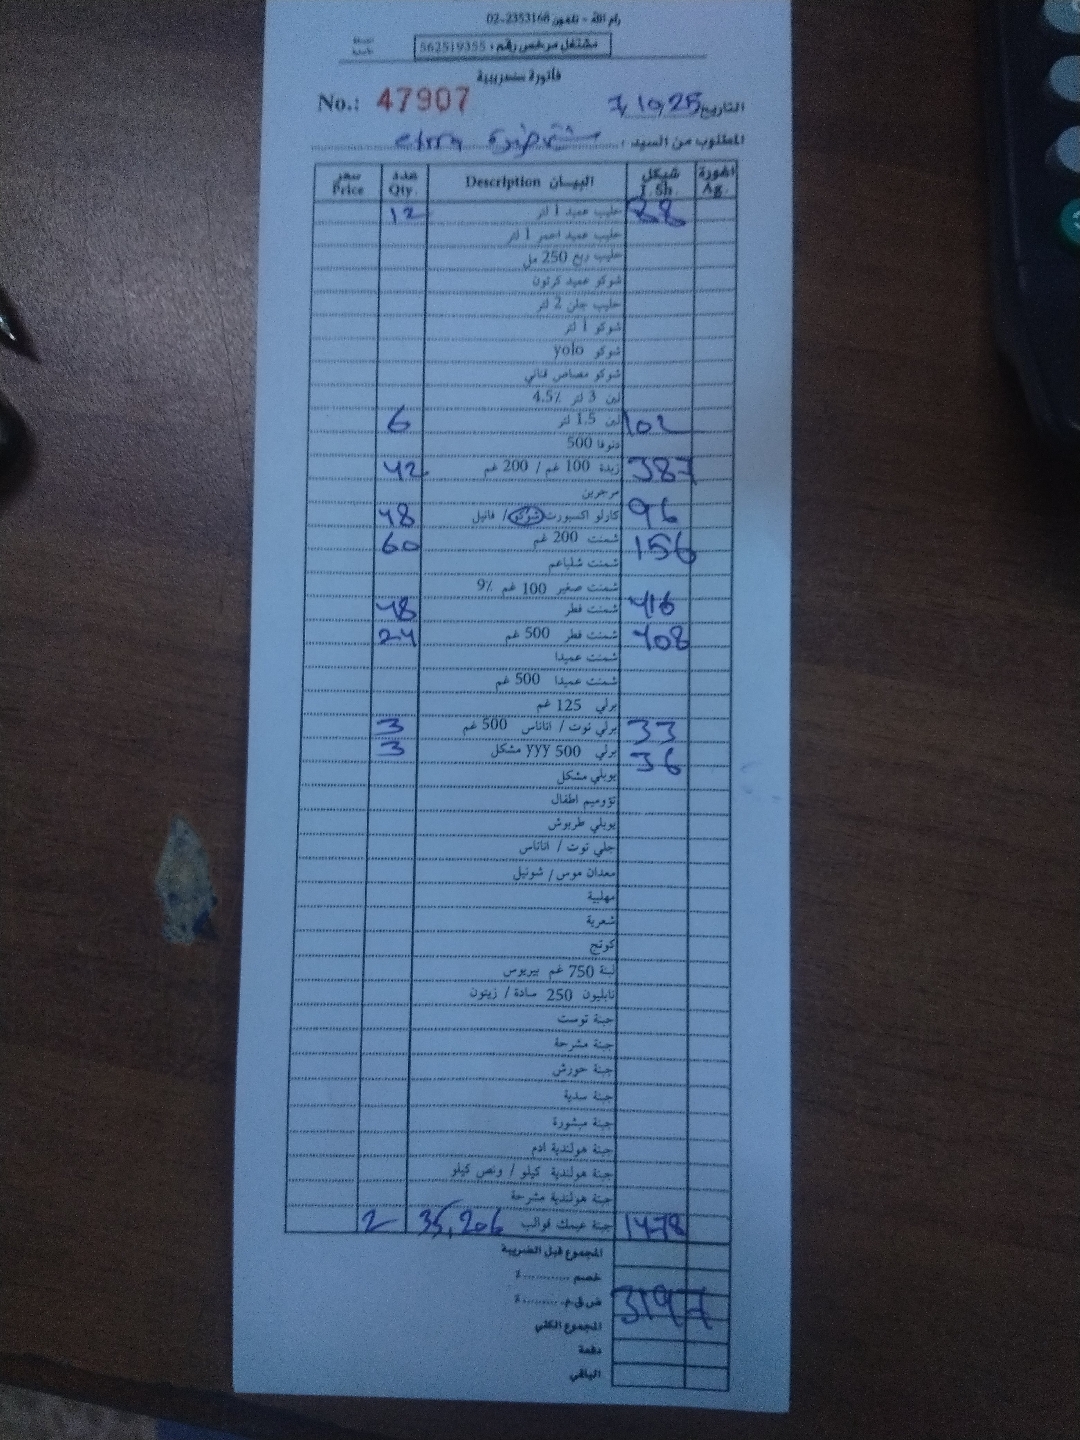 رام الله - تلفون 02-2353168
مشتغل مرخص رقم : 562519355
فاتورة ضريبية
No.: 47907 التاريخ 7,10,25
المطلوب من السيد :
سعر Price عدد Qty. البيـــان Description شيكل I. Sh. اغورة Ag.
12 حليب عميد 1 لتر 88
حليب عميد احمر 1 لتر
حليب ربع 250 مل
شوكو عميد كرتون
حليب جلن 2 لتر
شوكو 1 لتر
شوكو yolo
شوكو مصاص قناني
لبن 3 لتر 4.5٪
6 لبن 1.5 لتر 102
دنونا 500
42 زبدة 100 غم / 200 غم 387
مرجرين
48 كارلو اكسبورت شوكو / فانيل 96
60 شمنت 200 غم 156
شمنت شلباعم
شمنت صغير 100 غم 9٪
48 شمنت فطر 416
24 شمنت فطر 500 غم 408
شمنت عميدا
شمنت عميدا 500 غم
برلي 125 غم
3 برلي توت / اناناس 500 غم 33
3 برلي yyy 500 مشكل 36
يوبلي مشكل
تؤوميم اطفال
يوبلي طربوش
جلي توت / اناناس
معدان موس / شونيل
مهلبية
شعرية
كوتج
لبنة 750 غم بيريوس
نابليون 250 سادة / زيتون
جبنة توست
جبنة مشرحة
جبنة حورش
جبنة سدية
جبنة مبشورة
جبنة هولندية ادم
جبنة هولندية كيلو / ونص كيلو
جبنة هولندية مشرحة
2 35,206 جبنة عيمك قوالب 1478
المجموع قبل الضريبة
خصم ............٪
ض.ق.م..........٪ 3197
المجموع الكلي
دفعة
الباقي